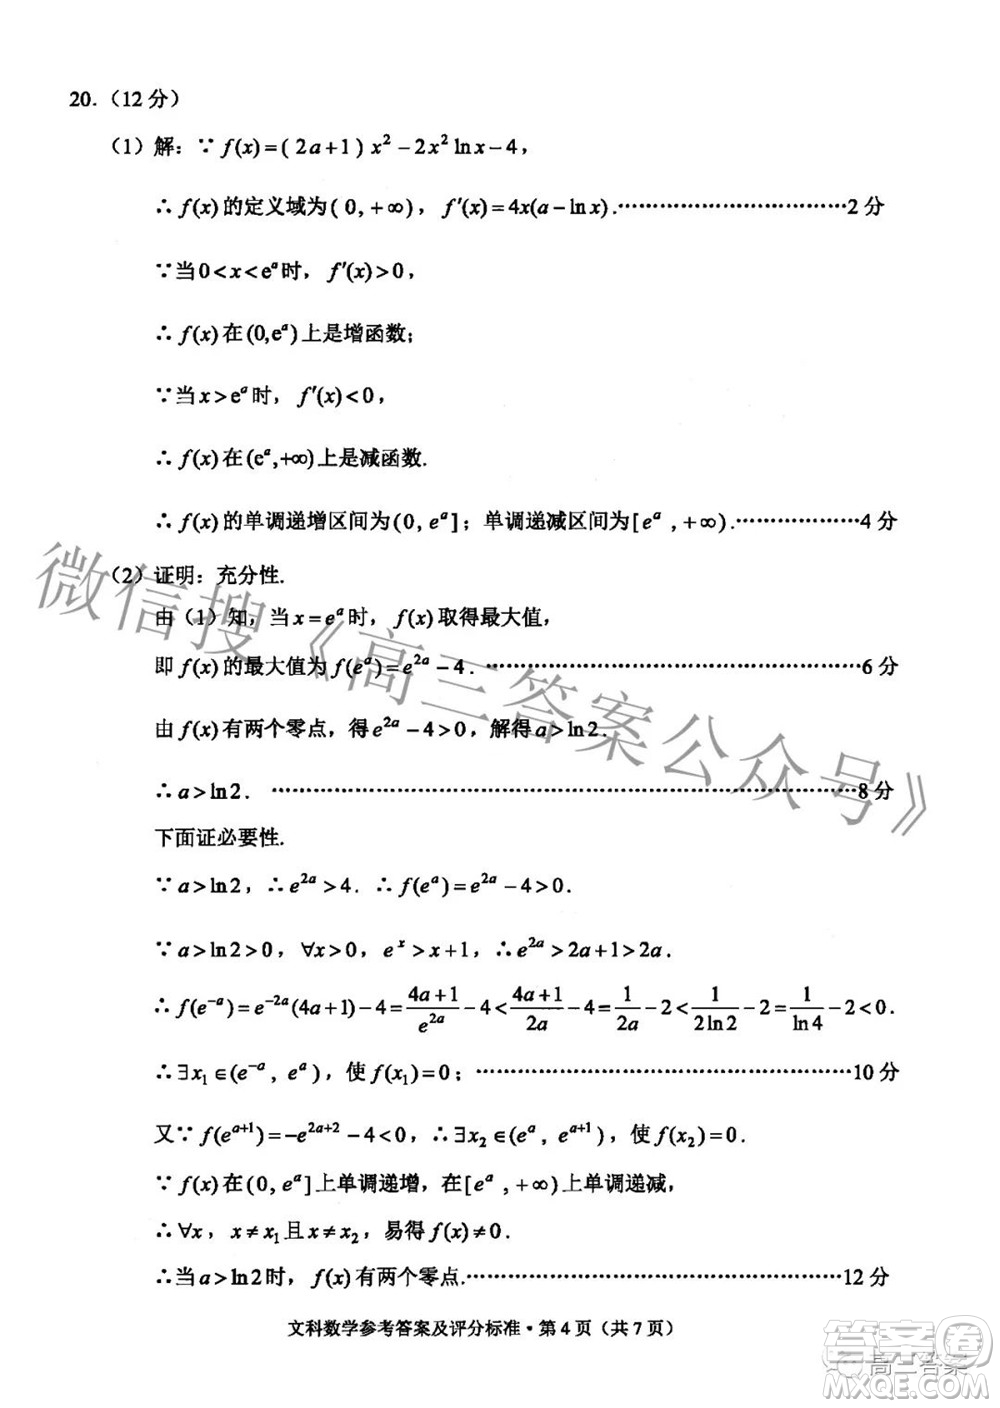 20.（12 分）
（1）解：∵ f(x)=( 2a+1 ) x² − 2x² ln x − 4，
∴ f(x) 的定义域为 ( 0, +∞)，f′(x) = 4x(a − ln x).……………………………2 分
∵当 0 < x < eᵃ 时，f′(x) > 0，
∴ f(x) 在 (0, eᵃ) 上是增函数；
∵当 x > eᵃ 时，f′(x) < 0，
∴ f(x) 在 (eᵃ, +∞) 上是减函数.
∴ f(x) 的单调递增区间为 (0, eᵃ]；单调递减区间为 [eᵃ , +∞).………………4 分
（2）证明：充分性.
由（1）知，当 x = eᵃ 时，f(x) 取得最大值，
即 f(x) 的最大值为 f(eᵃ) = e²ᵃ − 4．………………………………………………6 分
由 f(x) 有两个零点，得 e²ᵃ − 4 > 0，解得 a > ln 2．
∴ a > ln 2．…………………………………………………………………………8 分
下面证必要性.
∵ a > ln 2，∴ e²ᵃ > 4．∴ f(eᵃ) = e²ᵃ − 4 > 0．
∵ a > ln 2 > 0，∀x > 0，eˣ > x + 1，∴ e²ᵃ > 2a + 1 > 2a．
∴ f(e⁻ᵃ) = e⁻²ᵃ(4a + 1) − 4 = (4a+1)/e²ᵃ − 4 < (4a+1)/2a − 4 = 1/2a − 2 < 1/2ln2 − 2 = 1/ln4 − 2 < 0．
∴ ∃x₁ ∈ (e⁻ᵃ, eᵃ)，使 f(x₁) = 0；………………………………………………10 分
又∵ f(eᵃ⁺¹) = −e²ᵃ⁺² − 4 < 0，∴ ∃x₂ ∈ (eᵃ, eᵃ⁺¹)，使 f(x₂) = 0．
∵ f(x) 在 (0, eᵃ] 上单调递增，在 [eᵃ , +∞) 上单调递减，
∴ ∀x，x ≠ x₁ 且 x ≠ x₂，易得 f(x) ≠ 0．
∴当 a > ln 2 时，f(x) 有两个零点.………………………………………………12 分
文科数学参考答案及评分标准·第 4 页（共 7 页）
微信搜《高三答案公众号》
答案圈
高三答案
MXQE.COM